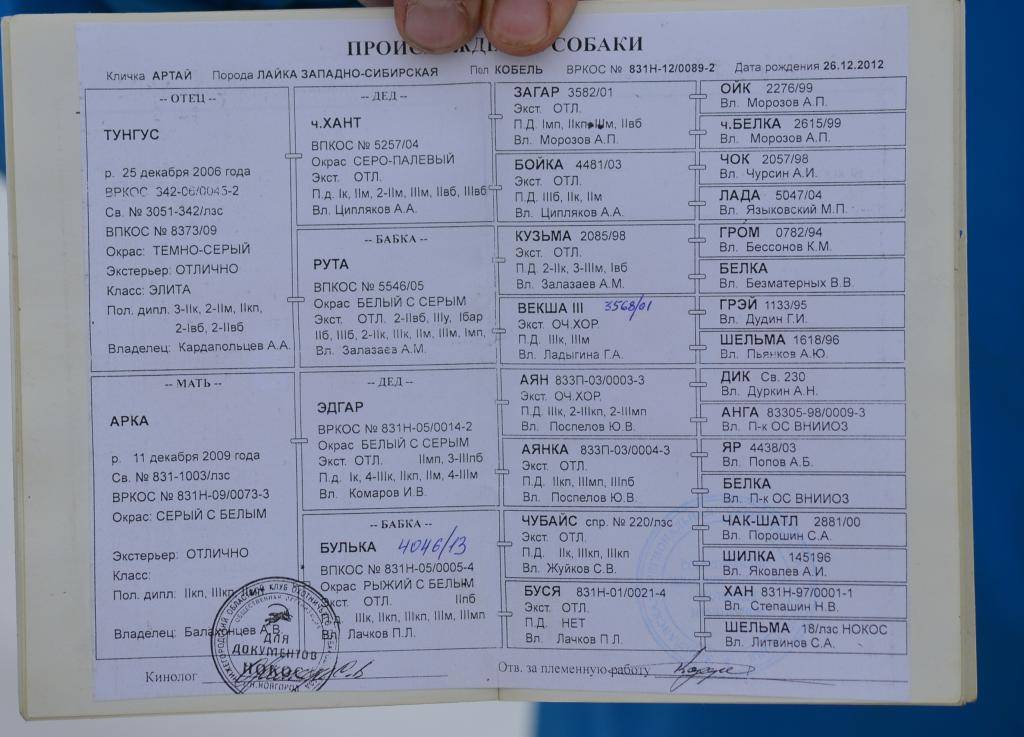 СОБАКИ
Кличка АРТАЙ Порода ЛАЙКА ЗАПАДНО-СИБИРСКАЯ Пол КОБЕЛЬ ВРКОС № 831Н-12/0089-2 Дата рождения 26.12.2012
-- ОТЕЦ --
ТУНГУС
р. 25 декабря 2006 года
ВРКОС 342-06/0045-2
Св. № 3051-342/лзс
ВПКОС № 8373/09
Окрас: ТЕМНО-СЕРЫЙ
Экстерьер: ОТЛИЧНО
Класс: ЭЛИТА
Пол. дипл. 3-IIк, 2-IIм, IIкп,
2-Iвб, 2-IIвб
Владелец: Кардапольцев А.А.
-- МАТЬ --
АРКА
р. 11 декабря 2009 года
Св. № 831-1003/лзс
ВРКОС № 831Н-09/0073-3
Окрас: СЕРЫЙ С БЕЛЫМ
Экстерьер: ОТЛИЧНО
Класс:
Пол. дипл: IIкп, IIIкп,
Владелец: Балахонцев А.В.
-- ДЕД --
ч.ХАНТ
ВПКОС № 5257/04
Окрас СЕРО-ПАЛЕВЫЙ
Экст. ОТЛ.
П.д. Iк, IIм, 2-IIм, IIIм, IIвб, IIIвб
Вл. Ципляков А.А.
-- БАБКА --
РУТА
ВПКОС № 5546/05
Окрас БЕЛЫЙ С СЕРЫМ
Экст. ОТЛ. 2-IIвб, IIIу, Iбар
IIб, IIIб, 2-IIк, IIIк, IIм, IIIм, Iмп,
Вл. Залазаев А.М.
-- ДЕД --
ЭДГАР
ВРКОС № 831Н-05/0014-2
Окрас БЕЛЫЙ С СЕРЫМ
Экст. ОТЛ. IIмп, 3-IIIпб
П.д. Iк, 4-IIк, IIкп, IIм, 4-IIIм
Вл. Комаров И.В.
-- БАБКА --
БУЛЬКА 4046/13
ВРКОС № 831Н-05/0005-4
Окрас РЫЖИЙ С БЕЛЫМ
Экст. ОТЛ. IIпб
IIIк, IIкп, IIIкп, IIм, IIIм, IIIмп
Вл. Лачков П.Л.
ЗАГАР 3582/01
Экст. ОТЛ.
П.Д. Iмп, IIкп, IIм, IIвб
Вл. Морозов А.П.
БОЙКА 4481/03
Экст. ОТЛ.
П.Д. IIIб, IIк, IIм
Вл. Ципляков А.А.
КУЗЬМА 2085/98
Экст. ОТЛ.
П.Д. 2-IIк, 3-IIIм, Iвб
Вл. Залазаев А.М.
ВЕКША III 3568/01
Экст. ОЧ.ХОР.
П.Д. IIIк, IIIм
Вл. Ладыгина Г.А.
АЯН 833П-03/0003-3
Экст. ОЧ.ХОР.
П.Д. IIIк, 2-IIIкп, 2-IIIмп
Вл. Поспелов Ю.В.
АЯНКА 833П-03/0004-3
Экст. ОТЛ.
П.Д. IIкп, IIIмп, IIIпб
Вл. Поспелов Ю.В.
ЧУБАЙС спр. № 220/лзс
Экст. ОТЛ.
П.Д. IIк, IIIкп, IIIкп
Вл. Жуйков С.В.
БУСЯ 831Н-01/0021-4
Экст. ОТЛ.
П.Д. НЕТ
Вл. Лачков П.Л.
ОЙК 2276/99
Вл. Морозов А.П.
ч.БЕЛКА 2615/99
Вл. Морозов А.П.
ЧОК 2057/98
Вл. Чурсин А.И.
ЛАДА 5047/04
Вл. Языковский М.П.
ГРОМ 0782/94
Вл. Бессонов К.М.
БЕЛКА
Вл. Безматерных В.В.
ГРЭЙ 1133/95
Вл. Дудин Г.И.
ШЕЛЬМА 1618/96
Вл. Пьянков А.Ю.
ДИК Св. 230
Вл. Дуркин А.Н.
АНГА 83305-98/0009-3
Вл. П-к ОС ВНИИОЗ
ЯР 4438/03
Вл. Попов А.Б.
БЕЛКА
Вл. П-к ОС ВНИИОЗ
ЧАК-ШАТЛ 2881/00
Вл. Порошин С.А.
ШИЛКА 145196
Вл. Яковлев А.И.
ХАН 831Н-97/0001-1
Вл. Степашин Н.В.
ШЕЛЬМА 18/лзс НОКОС
Вл. Литвинов С.А.
Кинолог
Отв. за племенную работу
ДЛЯ
ДОКУМЕНТОВ
НОКОС
Н.НОВГОРОД